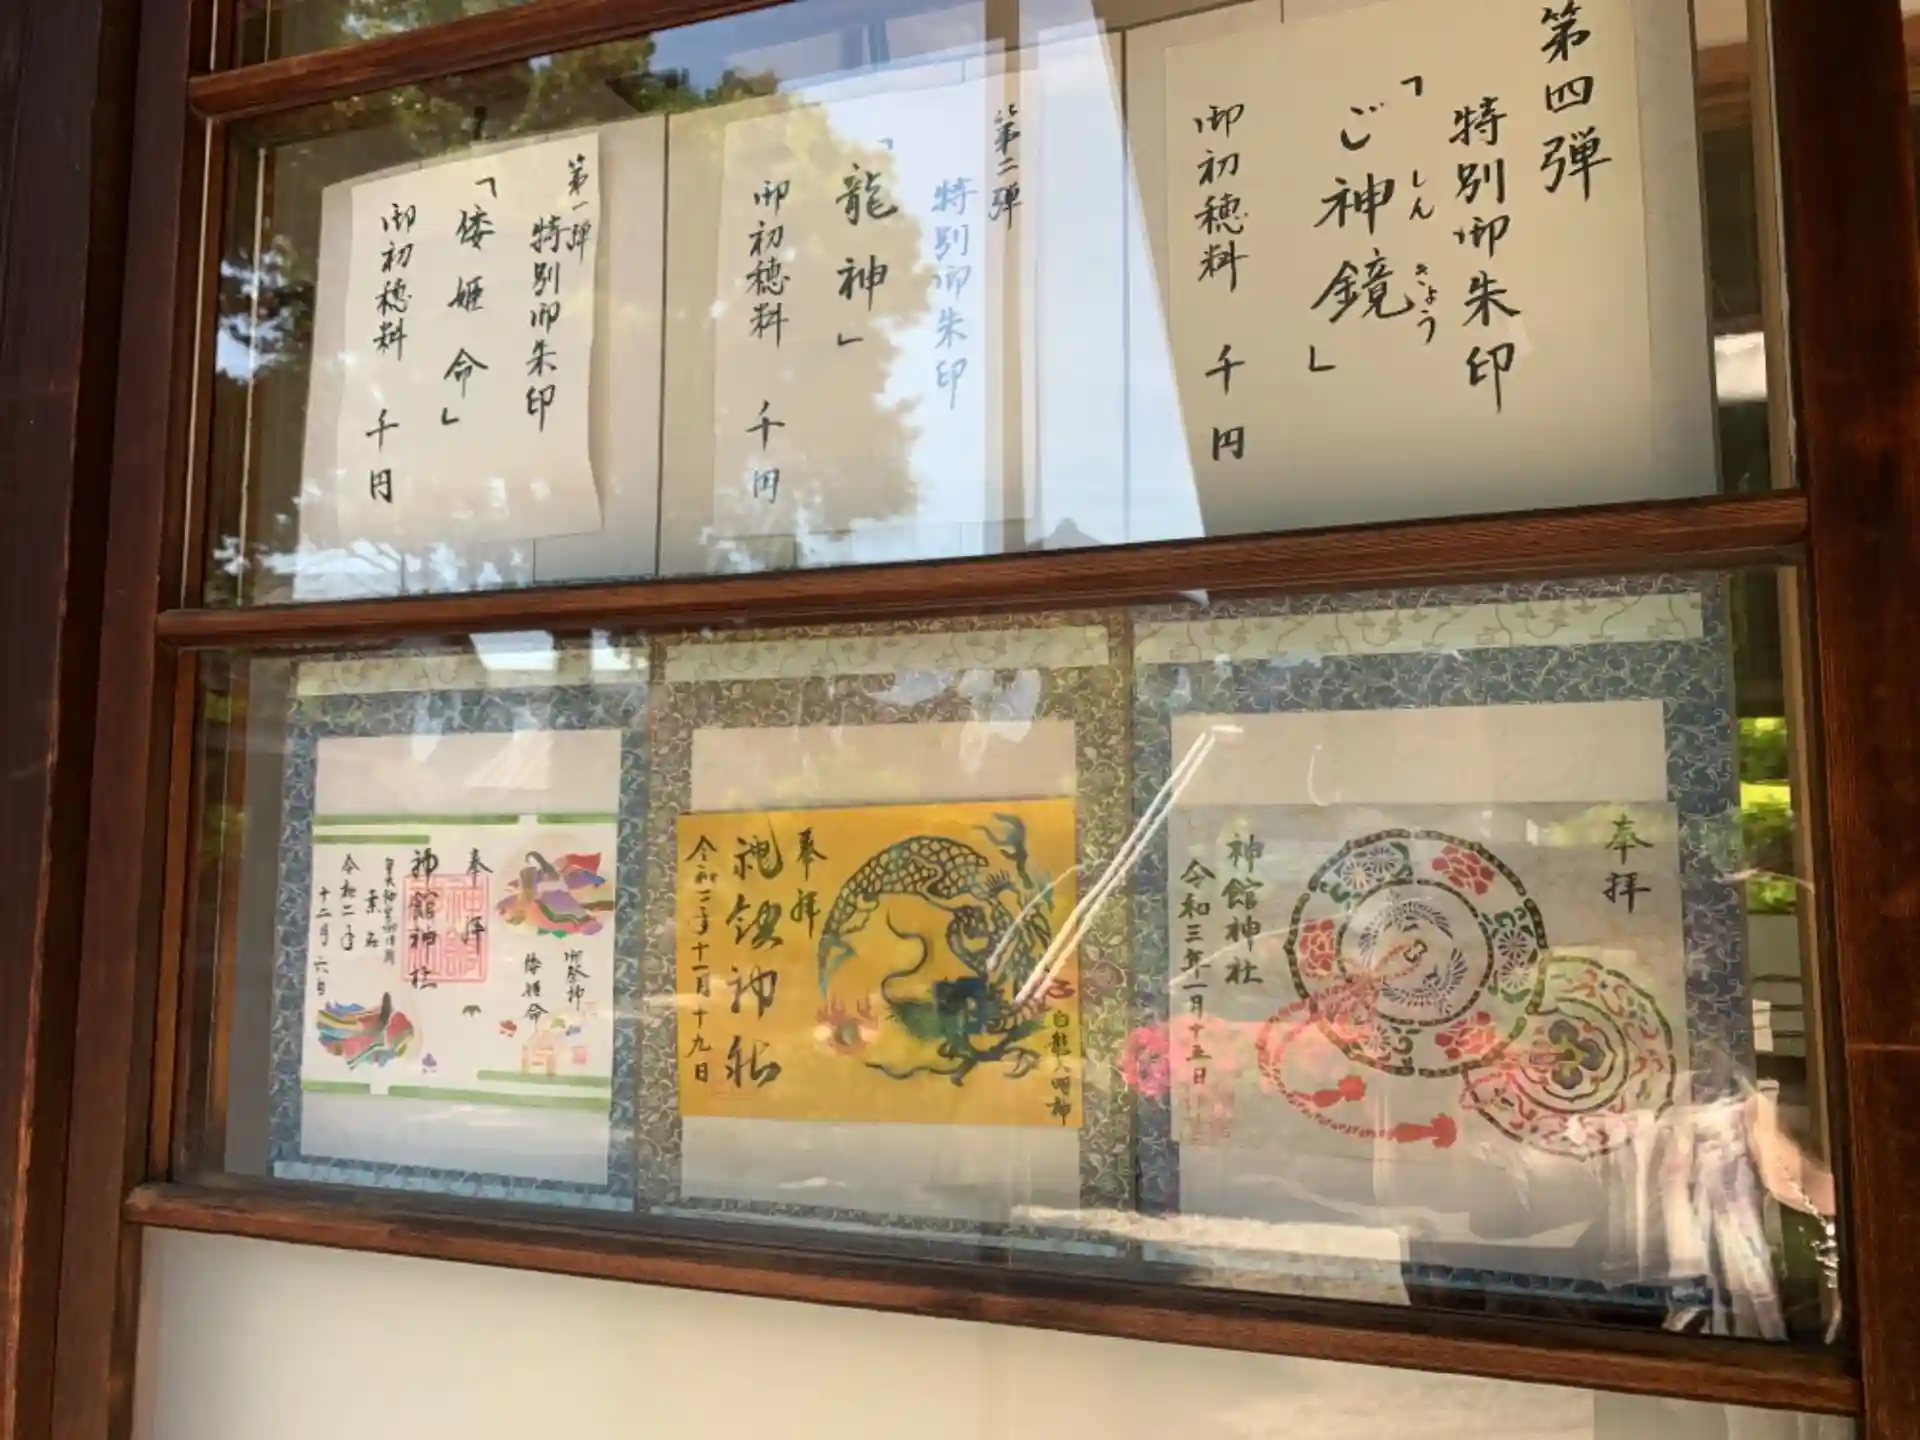 第四弾
特別御朱印
「ご神鏡」
しん
きょう
御初穂料 千円
第二弾
特別御朱印
「龍神」
御初穂料 千円
第一弾
特別御朱印
「倭姫命」
御初穂料 千円
奉拝
神館神社
令和三年一月十五日
白龍大明神
奉拝
神館神社
令和二年十一月十九日
御祭神
倭姫命
奉拝
神館神社
令和二年
十二月六日